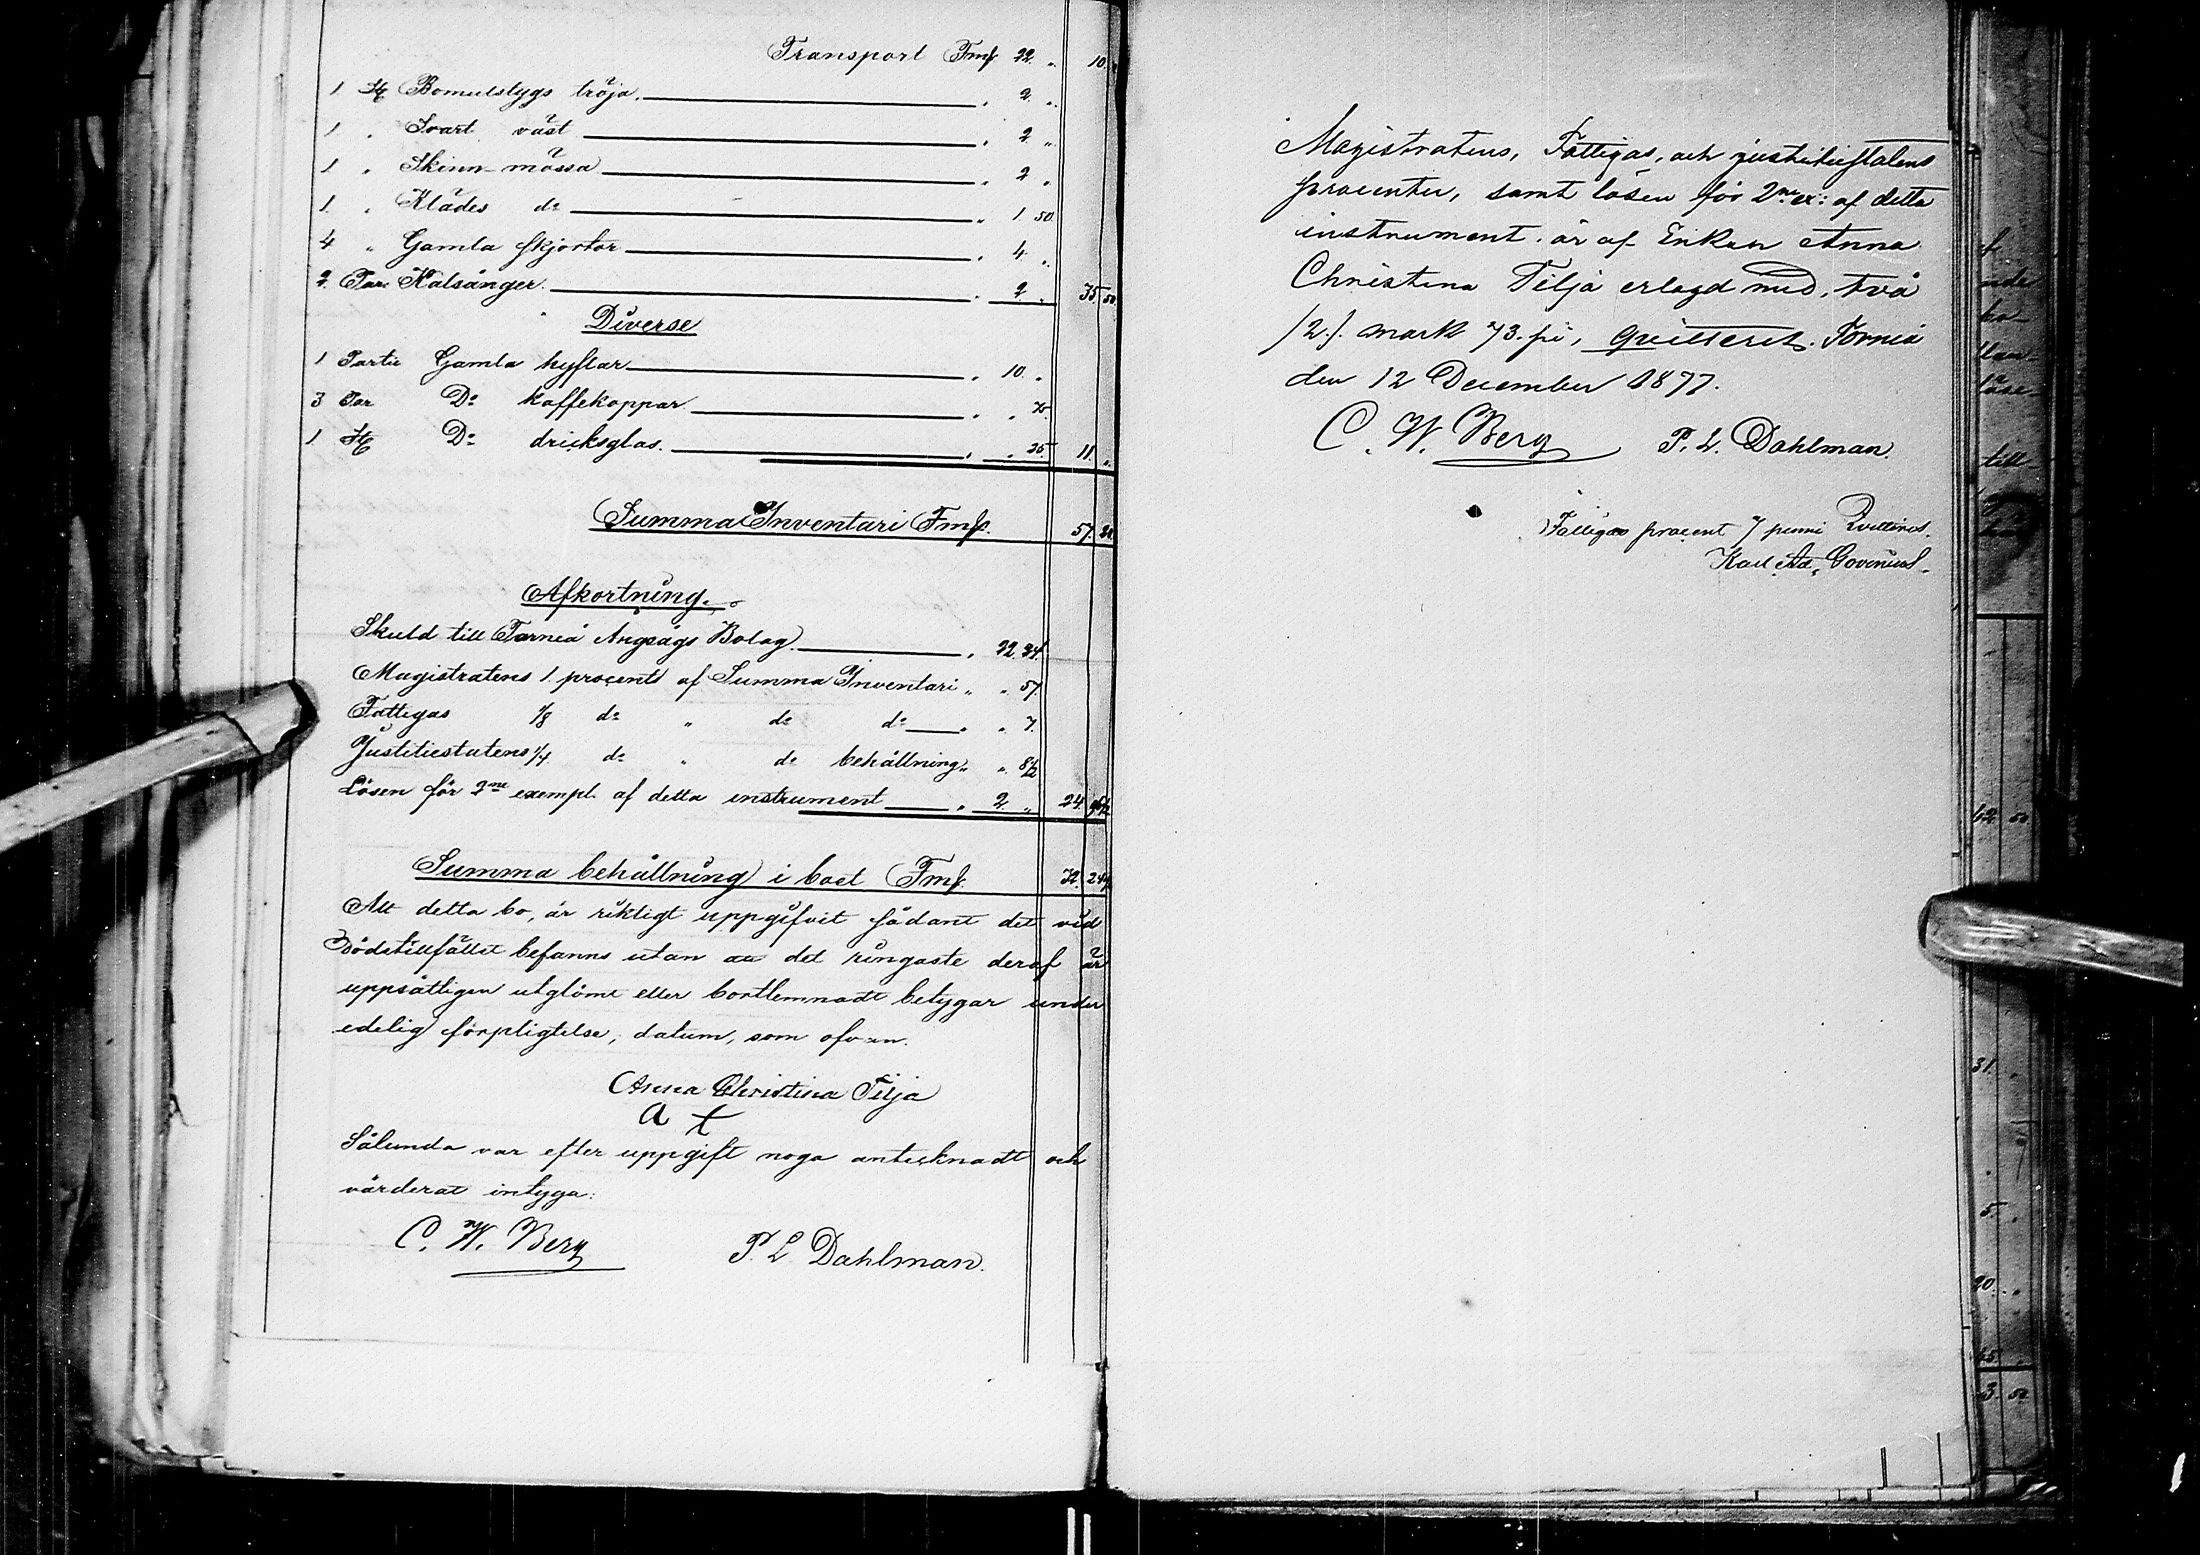 Transport Fmk 22 „ 10. „
1 St Bomulstygs tröja. „ 2. „
1 „ Svart väst „ 2 „
1 „ Skinn-mössa „ 2 „
1. „ Klädes do „ 1 50
4 „ Gamla skjortor „ 4. „
2. Par Kalsånger. „ 2 „ 35 50
Diverse
1 Parti Gamla hyflar „ 10. „
3 Par Do kaffekoppar „ „ 75.
1 St Do dricksglas. „ „ 25. 11. „
Summa Inventari Fmk. 57.
Afkortning.
Skuld till Torneå Ångsågs Bolag. „ 22. 24.
Magistratens 1. procent af Summa Inventari „ „ 57.
Fattigas 1/8 do „ do do „ „ 7.
Justitiestatens 1/4 do „ do behållning „ „ 8 1/2
Lösen för 2ne exempl. af detta instrument „ 2. „ 24. 96 1/2
Summa behållning i boet Fmk.
Att detta bo, är riktigt uppgifvit sådant det vid
Dödstillfället befanns utan att det ringaste deraf är
uppsåtligen utglömt eller bortlemnadt betygar under
edelig förpligtelse, datum, som ofvan.
Anna Christina Tilja
A t
Sålunda var efter uppgift noga antecknadt och
värderat intyga:
C. W. Berg P. L Dahlman.
Magistratens, Fattigas, och justitiestatens
procenter, samt lösen för 2ne ex: af detta
instrument. är af Enkan Anna
Christina Tilja erlagd med, två
/2./. mark 73. pi, qvitteret. Torneå
den 12 December 1877.
C. W. Berg P. L. Dahlman.
Fattigas procent 7 penni Qvitteras.
Karl Ad.